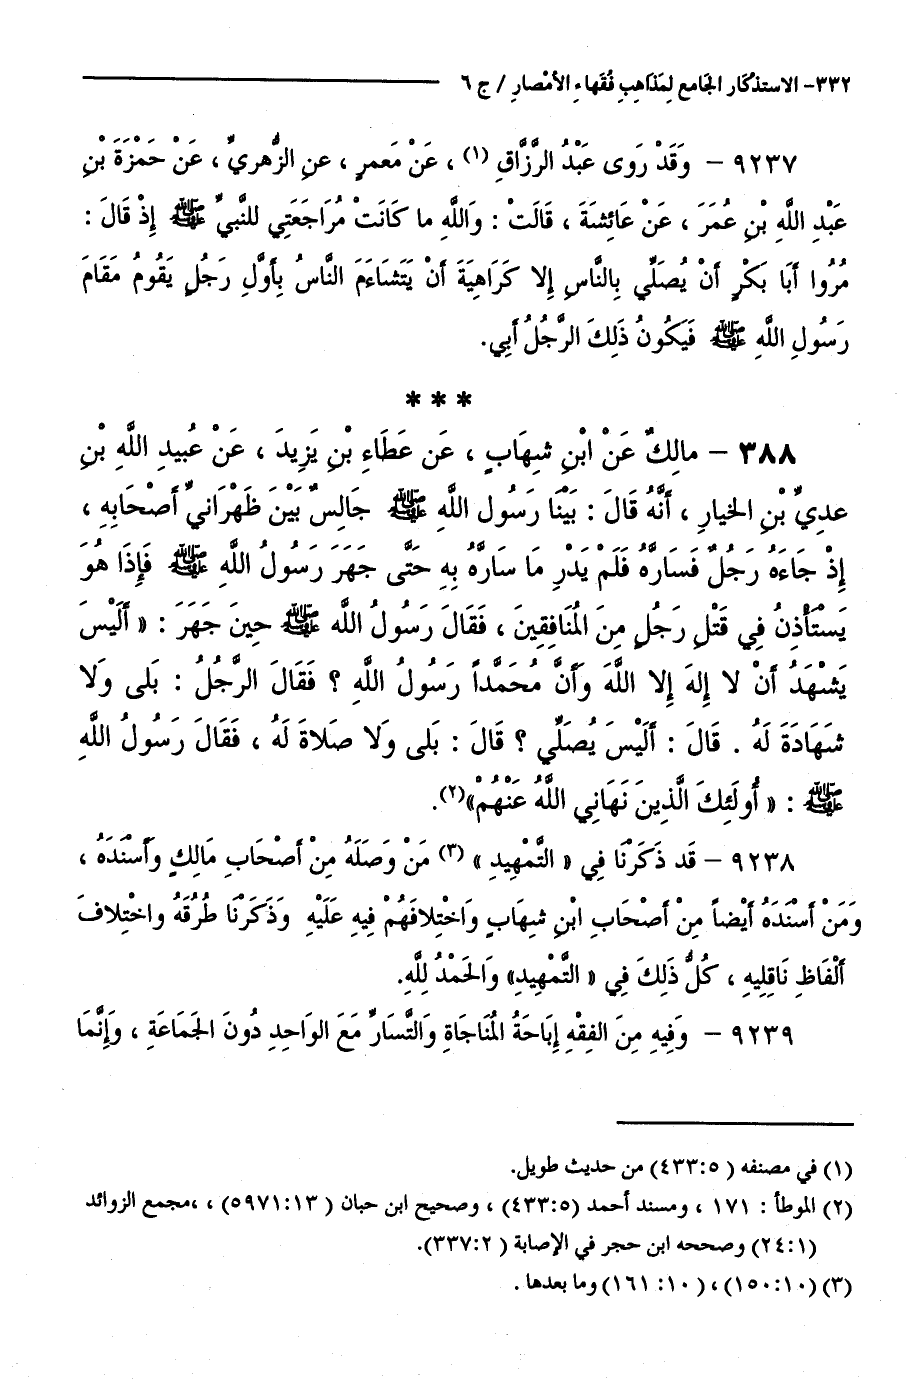 ٣٣٢- الاستذكار الجامع لِمَذاهِبِ فُقَهاء الأمْصارِ / ج ٦
٩٢٣٧ – وَقَدْ رَوى عَبْدُ الرَّزَّاقِ (١) ، عَنْ مَعمرٍ ، عنِ الزُّهريِّ ، عَنْ حَمْزَةَ بْنِ
عَبْدِ اللَّهِ بْنِ عُمَرَ ، عَنْ عَائِشَةَ ، قَالَتْ : وَاللَّهِ ما كَانَتْ مُرَاجَعَتِي للنَّبيِّ ﷺ إِذْ قَالَ :
مُرُوا أَبَا بَكْرٍ أَنْ يُصَلِّي بِالنَّاسِ إِلا كَرَاهِيَةَ أَنْ يَتَشَاءَمَ النَّاسُ بِأَوَّلِ رَجُلٍ يَقُومُ مَقَامَ
رَسُولِ اللَّهِ ﷺ فَيَكُونُ ذَلِكَ الرَّجُلُ أَبِي.
* * *
٣٨٨ – مالِكٌ عَنْ ابْنِ شِهَابٍ ، عَن عَطَاءِ بْنِ يَزِيدَ ، عَنْ عُبيدِ اللَّهِ بْنِ
عديِّ بْنِ الخيارِ ، أَنَّهُ قَالَ : بَيْنَا رَسُولُ اللَّهِ ﷺ جَالِسٌ بَيْنَ ظَهْرَانيِّ أَصْحَابِهِ ،
إِذْ جَاءَهُ رَجُلٌ فَسَارَّهُ فَلَمْ يَدْرِ مَا سَارَّهُ بِهِ حَتَّى جَهَرَ رَسُولُ اللَّهِ ﷺ فَإِذَا هُوَ
يَسْتَأْذِنُ فِي قَتْلِ رَجُلٍ مِنَ المُنَافِقِينَ ، فَقَالَ رَسُولُ اللَّه ﷺ حِينَ جَهَرَ : « أَلَيْسَ
يَشْهَدُ أَنْ لا إِلهَ إِلا اللَّهَ وَأَنَّ مُحَمَّداً رَسُولُ اللَّهِ ؟ فَقَالَ الرَّجُلُ : بَلى وَلا
شَهَادَةَ لَهُ . قَالَ : أَلَيْسَ يُصَلِّي ؟ قَالَ : بَلى وَلَا صَلاةَ لَهُ ، فَقَالَ رَسُولُ اللَّهِ
ﷺ : « أُولَئِكَ الَّذِينَ نَهَانِي اللَّهُ عَنْهُمْ»(٢).
٩٢٣٨ – قَد ذَكَرْنَا فِي « التَّمْهِيدِ » (٣) مَنْ وَصَلَهُ مِنْ أَصْحَابِ مَالِكٍ وَأَسْنَدَهُ ،
وَمَنْ أَسْنَدَهُ أَيْضاً مِنْ أَصْحَابِ ابْنِ شِهَابٍ وَاخْتِلافَهُمْ فِيهِ عَلَيْهِ وَذَكَرْنَا طُرُقَهُ واخْتِلافَ
أَلْفَاظِ نَاقِلِيهِ ، كُلُّ ذَلِكَ فِي « التَّمْهِيدِ» وَالحَمْدُ لِلَّهِ.
٩٢٣٩ – وَفِيهِ مِنَ الفِقْهِ إِبَاحَةُ المُنَاجَاةِ وَالتَّسَارِّ مَعَ الوَاحِدِ دُونَ الجَمَاعَةِ ، وَإِنَّمَا
(١) في مصنفه ( ٥:٤٣٣) من حديث طويل.
(٢) الموطأ : ١٧١ ، ومسند أحمد (٥:٤٣٣) ، وصحيح ابن حبان ( ١٣:٥٩٧١) ، ،مجمع الزوائد
(١:٢٤) وصححه ابن حجر في الإصابة ( ٢:٣٣٧).
(٣) (١٠:١٥٠)، ( ١٠: ١٦١) وما بعدها .